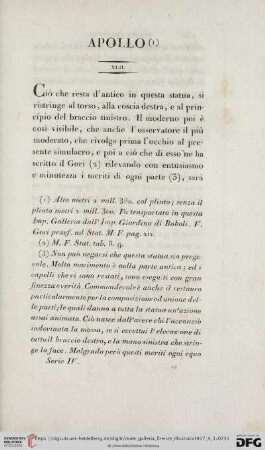 APOLLO (1)
XLII.
Ciò che resta d'antico in questa statua, si
ristringe al torso, alla coscia destra, e al prin-
cipio del braccio sinistro. Il moderno poi è
così visibile, che anche l'osservatore il più
moderato, che rivolga prima l'occhio al pre-
sente simulacro, e poi a ciò che di esso ne ha
scritto il Gori (2) rilevando con entusiasmo
e minutezza i meriti di ogni parte (3), sarà
(1) Alto metri 2. mill. 380. col plinto; senza il
plinto metri 2. mill. 300. Fu trasportato in questa
Imp. Galleria dall' Imp. Giardino di Boboli. V.
Gori praef. ad Stat. M. F. pag. XIV.
(2) M. F. Stat. tab. 8. 9.
(3) Non può negarsi che questa statua sia prege-
vole. Molto movimento è nella parte antica; ed i
capelli che vi sono restati, sono eseguiti con gran
finezza e verità. Commendevole è anche il restauro
particolarmente per la composizione ed unione del-
le parti; le quali danno a tutta la statua un'azione
assai animata. Ciò nasce dall'avere chi l'acconciò
indovinata la mossa, se si eccettui l'elevazione di
tutto il braccio destro, e la mano sinistra che strin-
ge la face. Malgrado però questi meriti ogni equo
Serie IV.